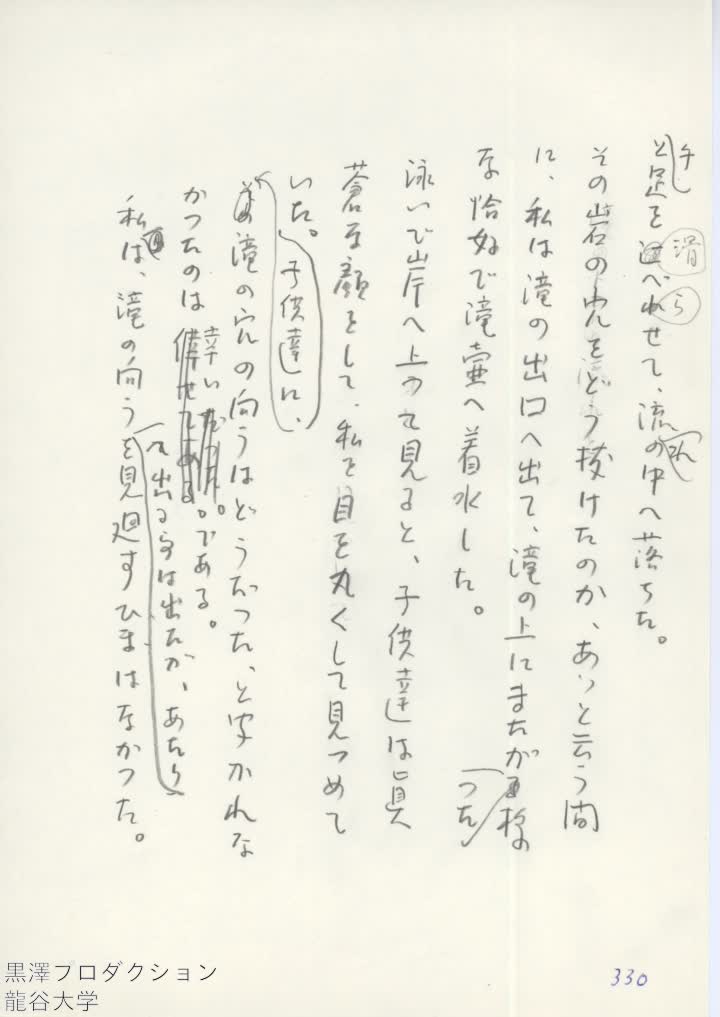 と足を滑べらせて、流れの中へ落ちた。
その岩の穴をどう抜けたのか、あっと云う間
に、私は滝の出口へ出て、滝の上にまたがった様
な恰好で滝壷へ着水した。
泳いで岸へ上って見ると、子供達は真
蒼な顔をして、私を目を丸くして見つめて
いた。子供達に、
滝の穴の向うはどうだった、と聞かれな
かったのは幸いである。
へ出る事は出たが、あたり
私は、滝の向うを見廻すひまはなかった。
330
黒澤プロダクション
龍谷大学